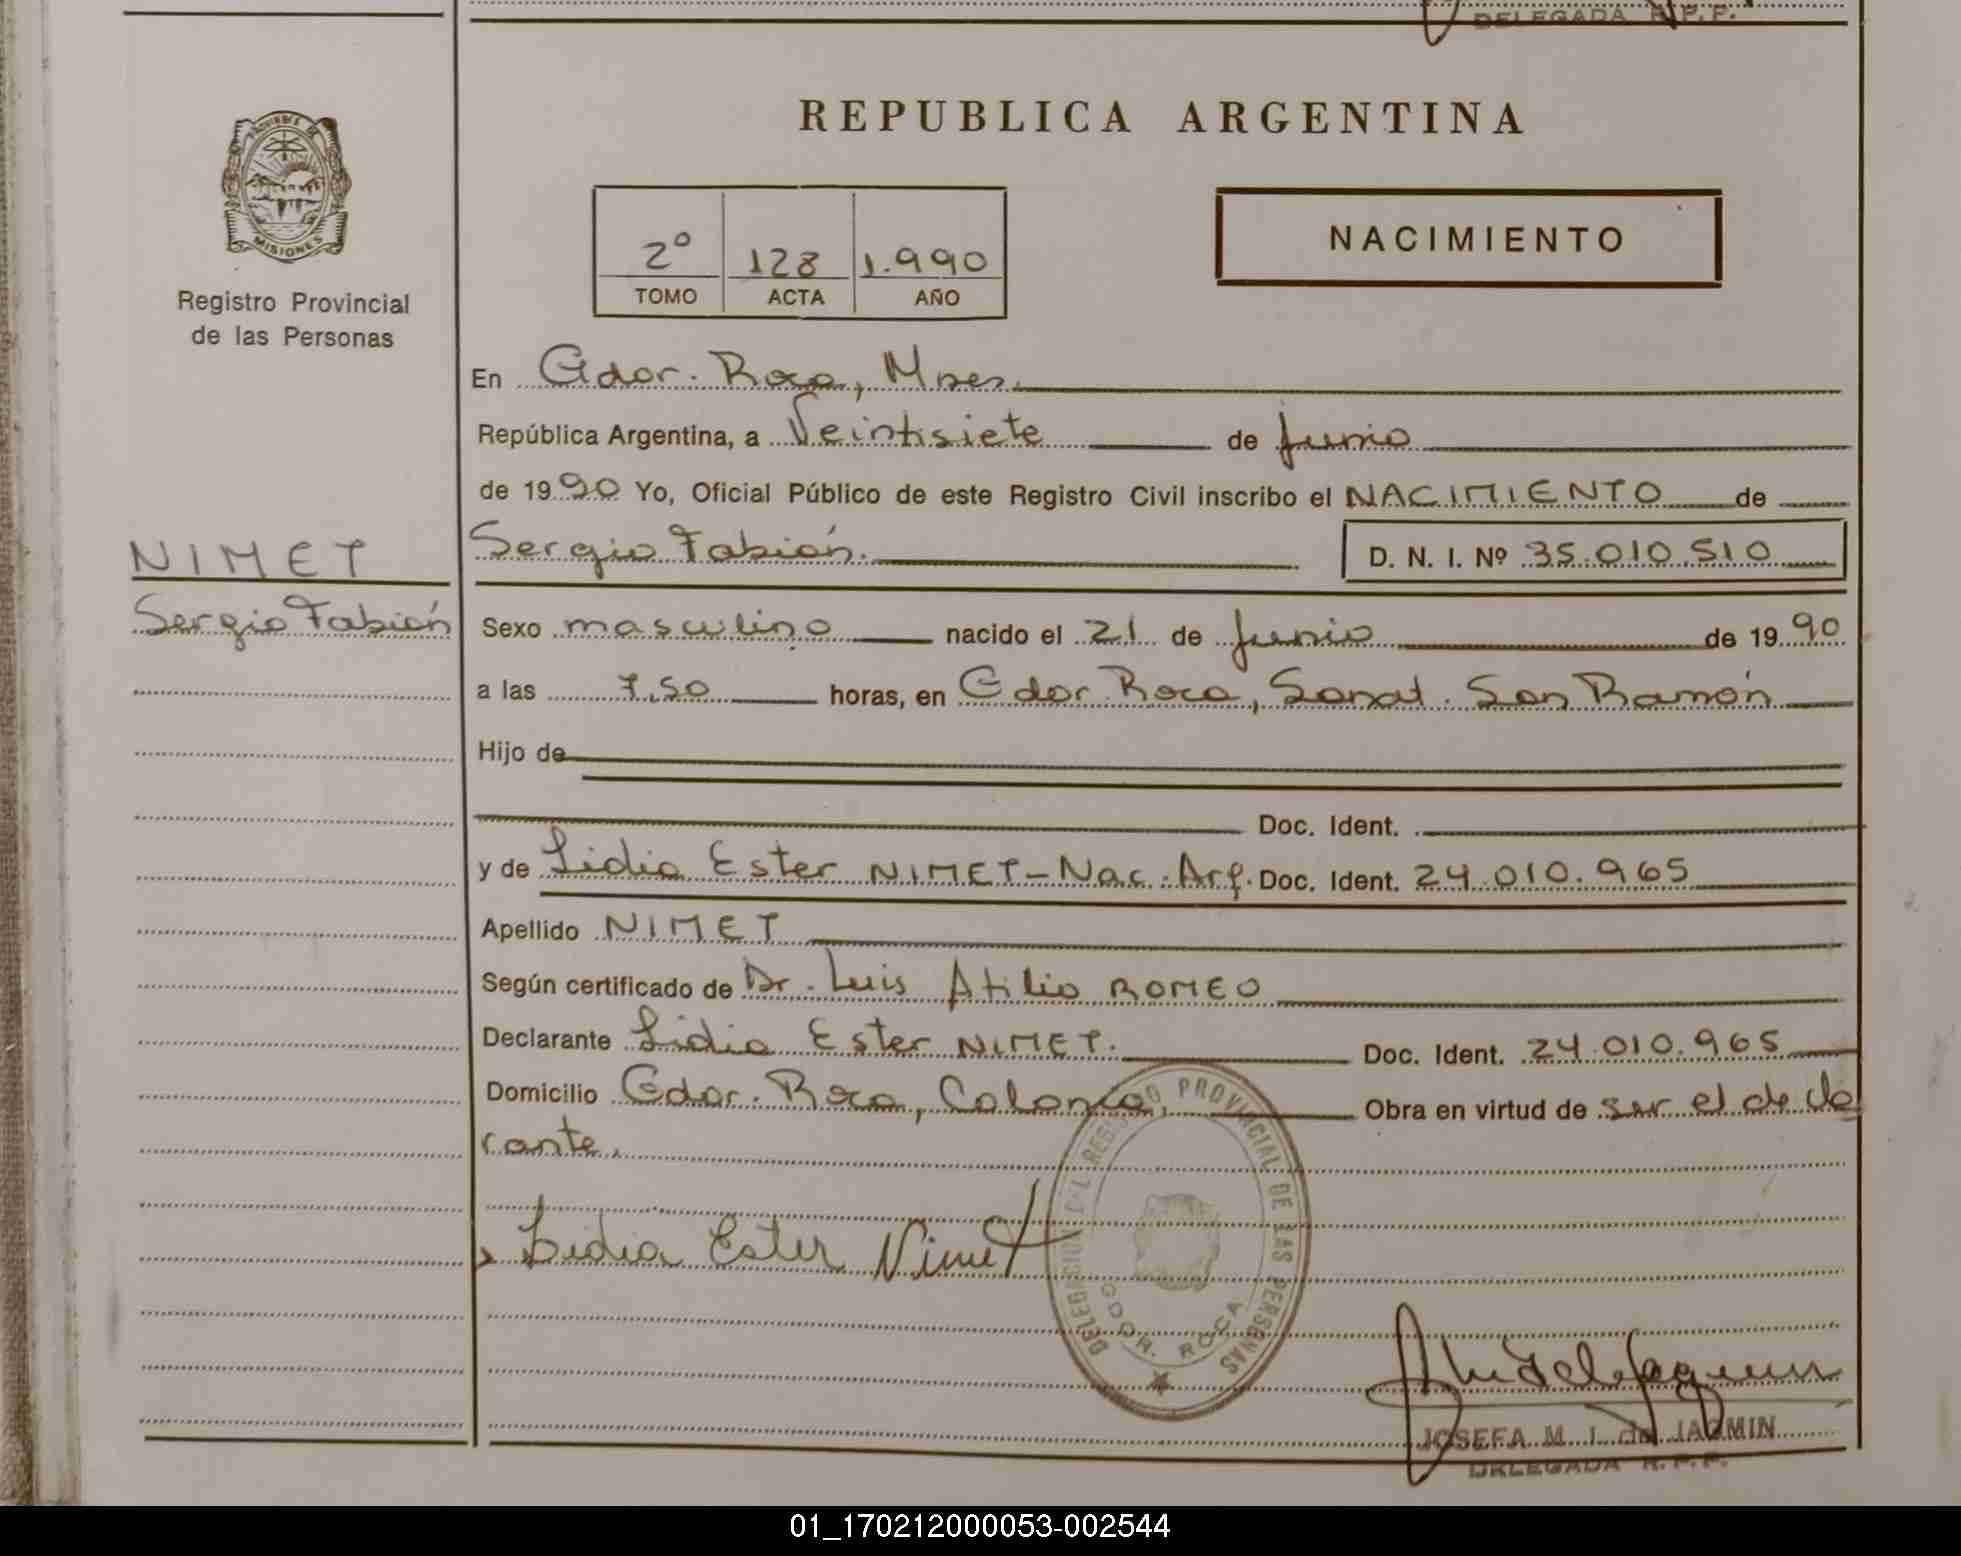 DELEGADA R.P.P.
PROVINCIA DE
MISIONES
Registro Provincial
de las Personas
REPUBLICA ARGENTINA
2º 128 1.990
TOMO ACTA AÑO
NACIMIENTO
En Gdor. Roca, Mnes.
República Argentina, a Veintisiete de Junio
de 1990 Yo, Oficial Público de este Registro Civil inscribo el NACIMIENTO de
NIMET
Sergio Fabián
Sergio Fabián. D. N. I. Nº 35.010.510
Sexo masculino nacido el 21 de Junio de 1990
a las 7,50 horas, en Gdor. Roca, Sanat. San Ramón
Hijo de
Doc. Ident.
y de Lidia Ester NIMET-Nac. Arg. Doc. Ident. 24.010.965
Apellido NIMET
Según certificado de Dr. Luis Atilio ROMEO
Declarante Lidia Ester NIMET. Doc. Ident. 24.010.965
Domicilio Gdor. Roca, Colonia, Obra en virtud de ser el decla
rante.
Lidia Ester Nimet
DELEGACION DEL REGISTRO PROVINCIAL DE LAS PERSONAS
GDOR. ROCA
JOSEFA M. I. de JAQMIN
DELEGADA R.P.P.
01_170212000053-002544